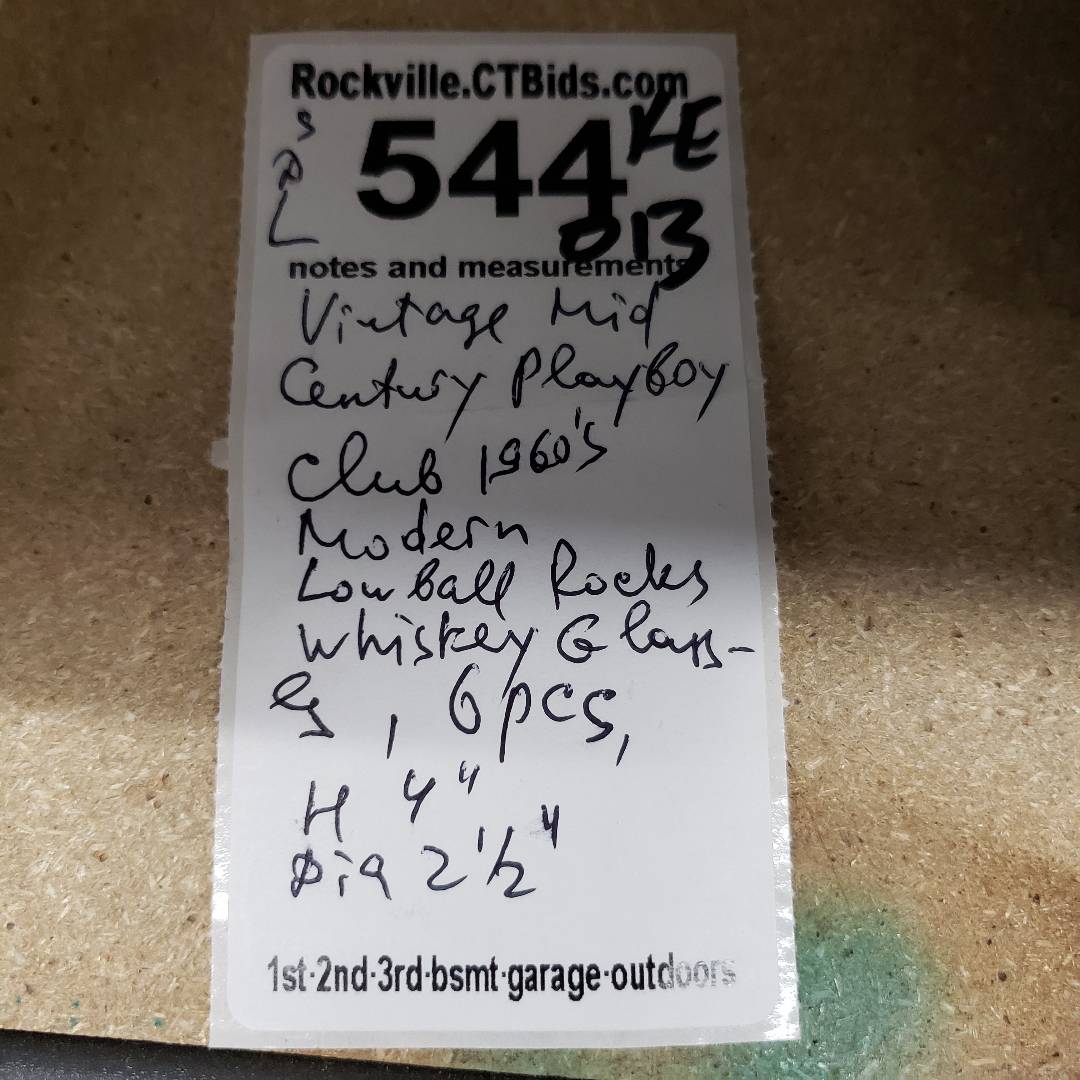 Rockville.CTBids.com
544
KE
013
notes and measurements
Vintage Mid
Century Playboy
Club 1960's
Modern
Lowball Rocks
Whiskey Glass-
es, 6pcs,
H 4"
Dia 2 1/2"
1st·2nd·3rd·bsmt·garage·outdoors